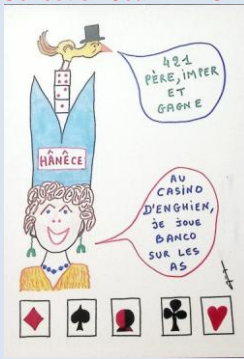 421
PÈRE, IMPER
ET
GAGNE
HÂNÊCE
AU
CASINO
D'ENGHIEN,
JE JOUE
BANCO
SUR LES
AS